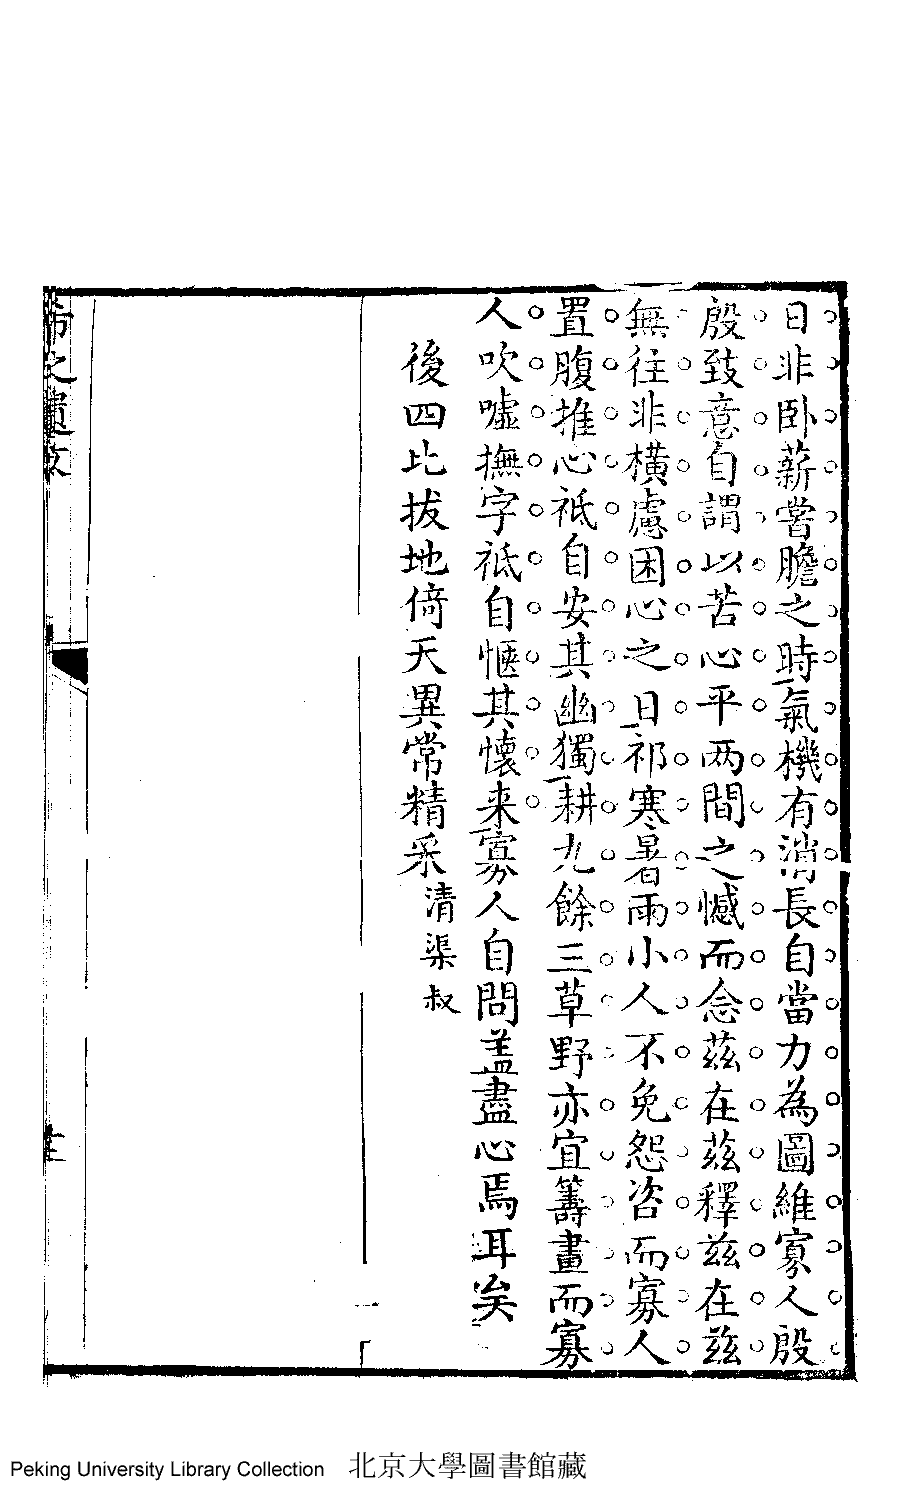 日非卧薪嘗膽之時氣機有消長自當力為圖維寡人殷
殷致意自謂以苦心平两間之憾而念茲在茲釋茲在茲
無往非橫慮困心之日祁寒暑雨小人不免怨咨而寡人
置腹推心祗自安其幽獨耕九餘三草野亦宜籌畫而寡
人吹噓撫字祗自愜其懷来寡人自問盖盡心焉耳矣
後四比拔地倚天異常精采清渠叔
之遺文
Peking University Library Collection 北京大學圖書館藏